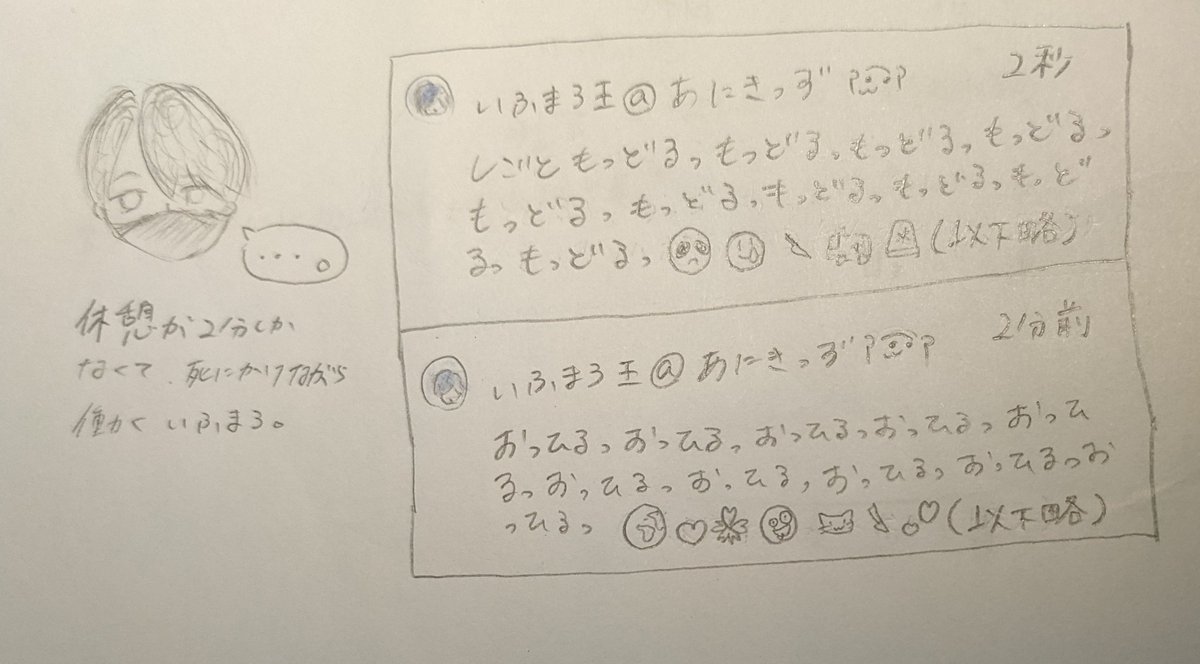 いふまろ王@あにきっず 2秒
しごともっどるっもっどるっもっどるっもっどるっ
もっどるっもっどるっもっどるっもっどるっもっど
るっもっどるっ(以下略)
いふまろ王@あにきっず 21分前
おっひるっおっひるっおっひるっおっひるっおっひ
るっおっひるっおっひるっおっひるっおっひるっお
っひるっ(以下略)
...。
休憩が21分しか
なくて、死にかけながら
働く いふまろ。